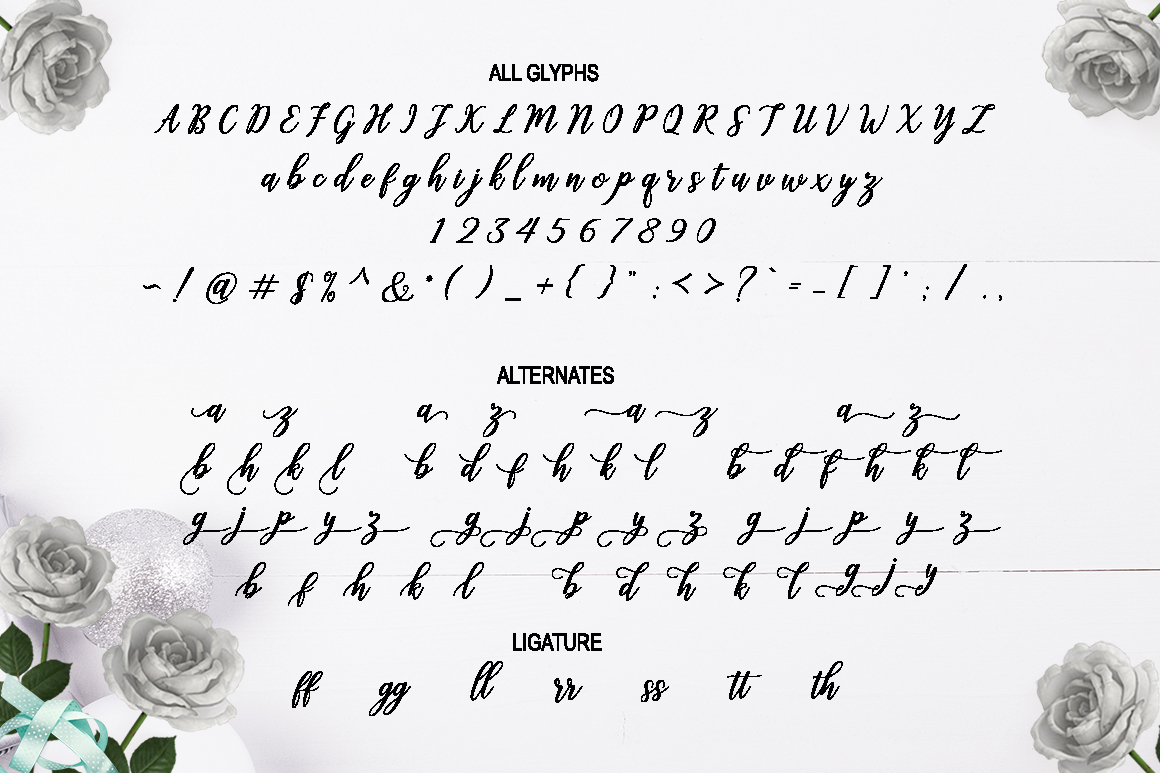 ALL GLYPHS
A B C D E F G H I J K L M N O P Q R S T U V W X Y Z
a b c d e f g h i j k l m n o p q r s t u v w x y z
1 2 3 4 5 6 7 8 9 0
~ ! @ # $ % ^ & * ( ) _ + { } " : < > ? ` = - [ ] ' ; / . ,
ALTERNATES
a z a z a z a z
b h k l b d f h k l b d f h k t
g j p y z g j p y z g j p y z
b f h k l b d h k l g j y
LIGATURE
ff gg ll rr ss tt th